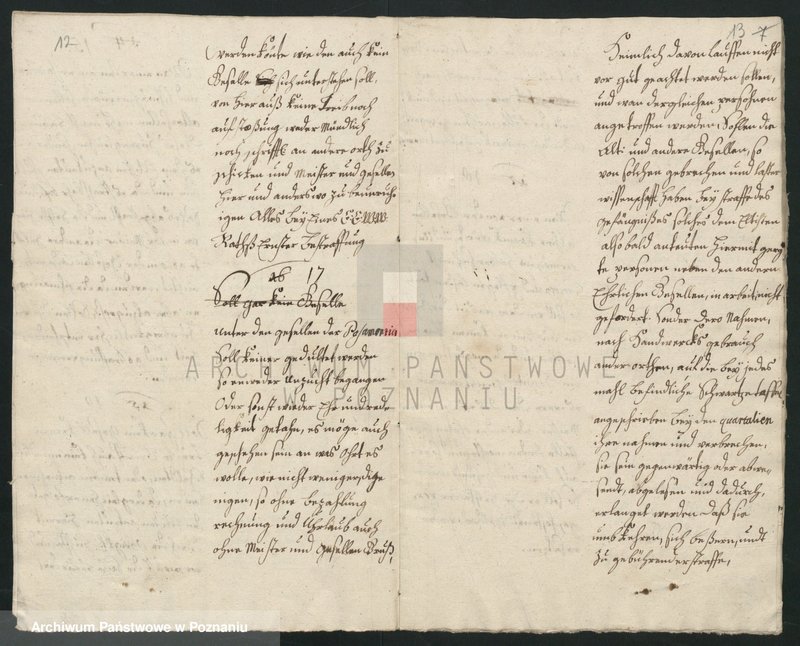 12
werden könte wie den auch kein
Geselle sich unterstehen soll,
von hier auß keine Treib noch
auf stoßung weder Mündlich
noch schrifftl an andere orth zu
schicken und Meister und gesellen
hier und anderswo zu beunruh-
igen Alles bey Eines
Raths Ernster bestraffung
17
Soll gar kein Geselle
unter den gesellen der
Soll keiner geduldet werden
so entweder Unzucht begangen
Oder sonst wieder Ehr und rede
ligkeit gethan, es möge auch
geschehen sein an was Ohrt es
wolle, wie nicht weniger die
nigen, so ohne bezahlung
rechnung und Uhrlaub auch
ohne Meister und Gesellen Gruß,
13 7
Heimlich davon lauffen nicht
vor gut geachtet werden sollen,
und wan dergleichen persohnen
angetroffen werden, Sollen die
Alti und andere Gesellen, so
von solchen gebrechen und laster
wissenschafft haben bey straffe des
gefängnißes solches dem Eltisten
alsobald andeuten
te personen neben den andern
Ehrlichen Gesellen, in arbeit nicht
gefördert. Sonder dero Nahmen,
nach Handwercks gebrauch
ander orthen, auf die bey jedes
mahl befindliche Schwartze taffel
angeschrieben bey den quartalien
ihre nahmen und verbrechen,
sie sein gegenwärtig oder abwe-
sendt, abgelesen und dadurch,
erlanget werden daß sie
umbkehren, sich beßern, undt
zu gebührender straffe,
ARCHIWUM PAŃSTWOWE
W POZNANIU
Archiwum Państwowe w Poznaniu